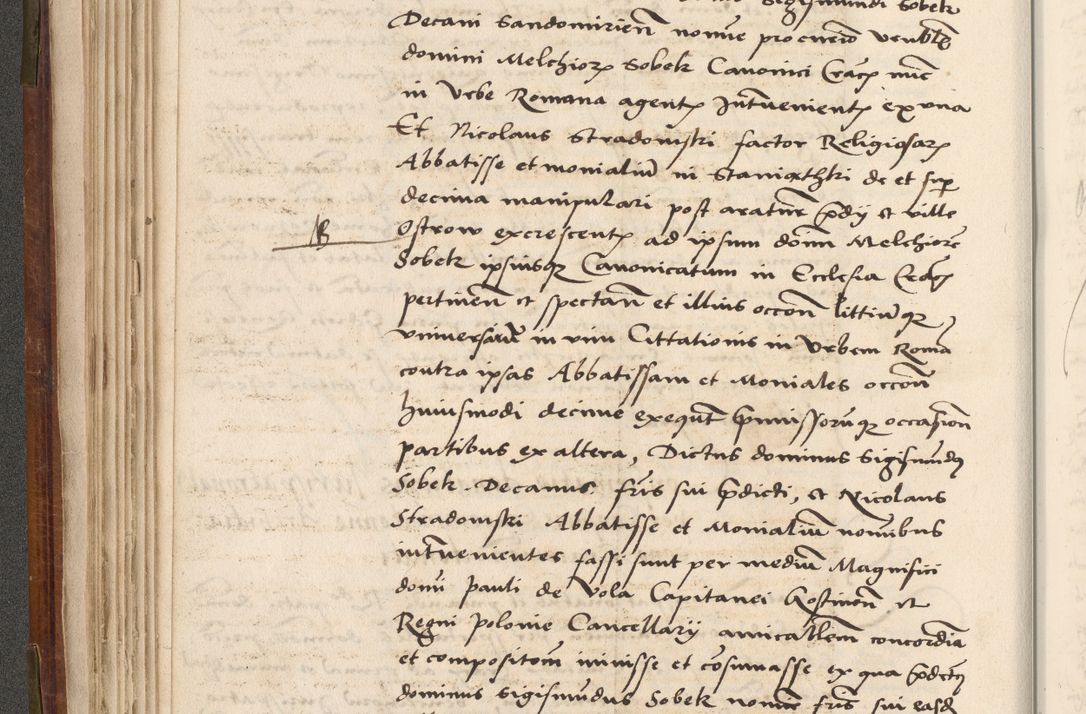 Sigismundi Sobek
Decani Sandomirien̄ nomīe procurō venblē
domini Melchior Sobek Canonici Crac nūc
in Vrbe Romana agent Intūenient ex vna
Et Nicolaus Stradomski factor Religiosar
Abbatisse et monialiū in Staniąthki de et sup
decima manipulari post araturē p̄dij et ville
Ostrow excrescent ad ipsum dōīm Melchiorē
Sobek ipsiusq Canonicatum in Ecclesia Crac
pertineñ et spectañ et illius occoñ littiūqr
vniuersarū in vim Cittationis in Vrbem Romā
contra ipsas Abbatissam et Moniales occoñ
huiusmodi decime exequt̄ p̄missorūqr occasioñ
partibus ex altera, Dictus dominus Sigismundq
Sobek Decanus fr̄is sui p̄dicti, et Nicolaus
Stradomski Abbatisse et Monialiū nomībus
intūenientes fassi sunt per mediū Magnifici
domī Pauli de Vola Capitanei Gostineñ et
Regni Polonie Cancellarij amicabłem concordiā
et compositōm inīsse et cōsumasse ex qua p̄dict
dominus Sigismūdus Sobek nomīe fr̄is sui easd